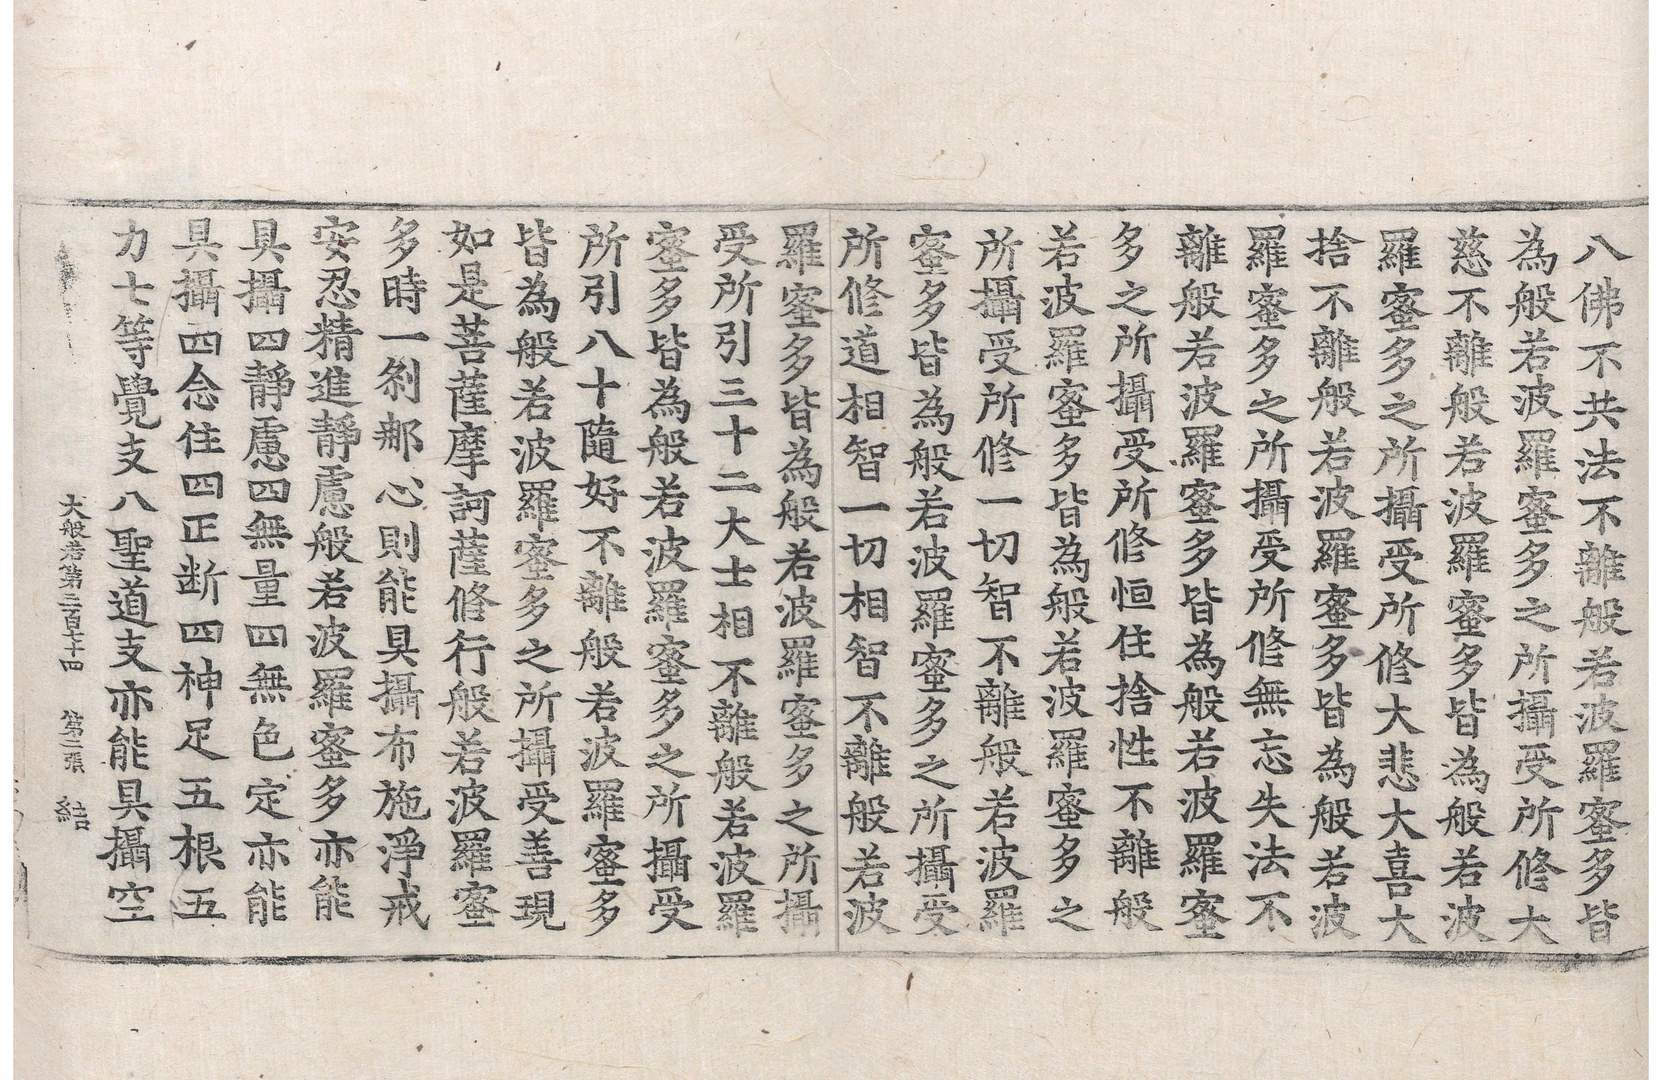 八佛不共法不離般若波羅蜜多皆
為般若波羅蜜多之所攝受所修大
慈不離般若波羅蜜多皆為般若波
羅蜜多之所攝受所修大悲大喜大
捨不離般若波羅蜜多皆為般若波
羅蜜多之所攝受所修無忘失法不
離般若波羅蜜多皆為般若波羅蜜
多之所攝受所修恒住捨性不離般
若波羅蜜多皆為般若波羅蜜多之
所攝受所修一切智不離般若波羅
蜜多皆為般若波羅蜜多之所攝受
所修道相智一切相智不離般若波
羅蜜多皆為般若波羅蜜多之所攝
受所引三十二大士相不離般若波羅
蜜多皆為般若波羅蜜多之所攝受
所引八十隨好不離般若波羅蜜多
皆為般若波羅蜜多之所攝受善現
如是菩薩摩訶薩修行般若波羅蜜
多時一刹那心則能具攝布施淨戒
安忍精進靜慮般若波羅蜜多亦能
具攝四靜慮四無量四無色定亦能
具攝四念住四正断四神足五根五
力七等覺支八聖道支亦能具攝空
大般若第三百七十四 第二張 結